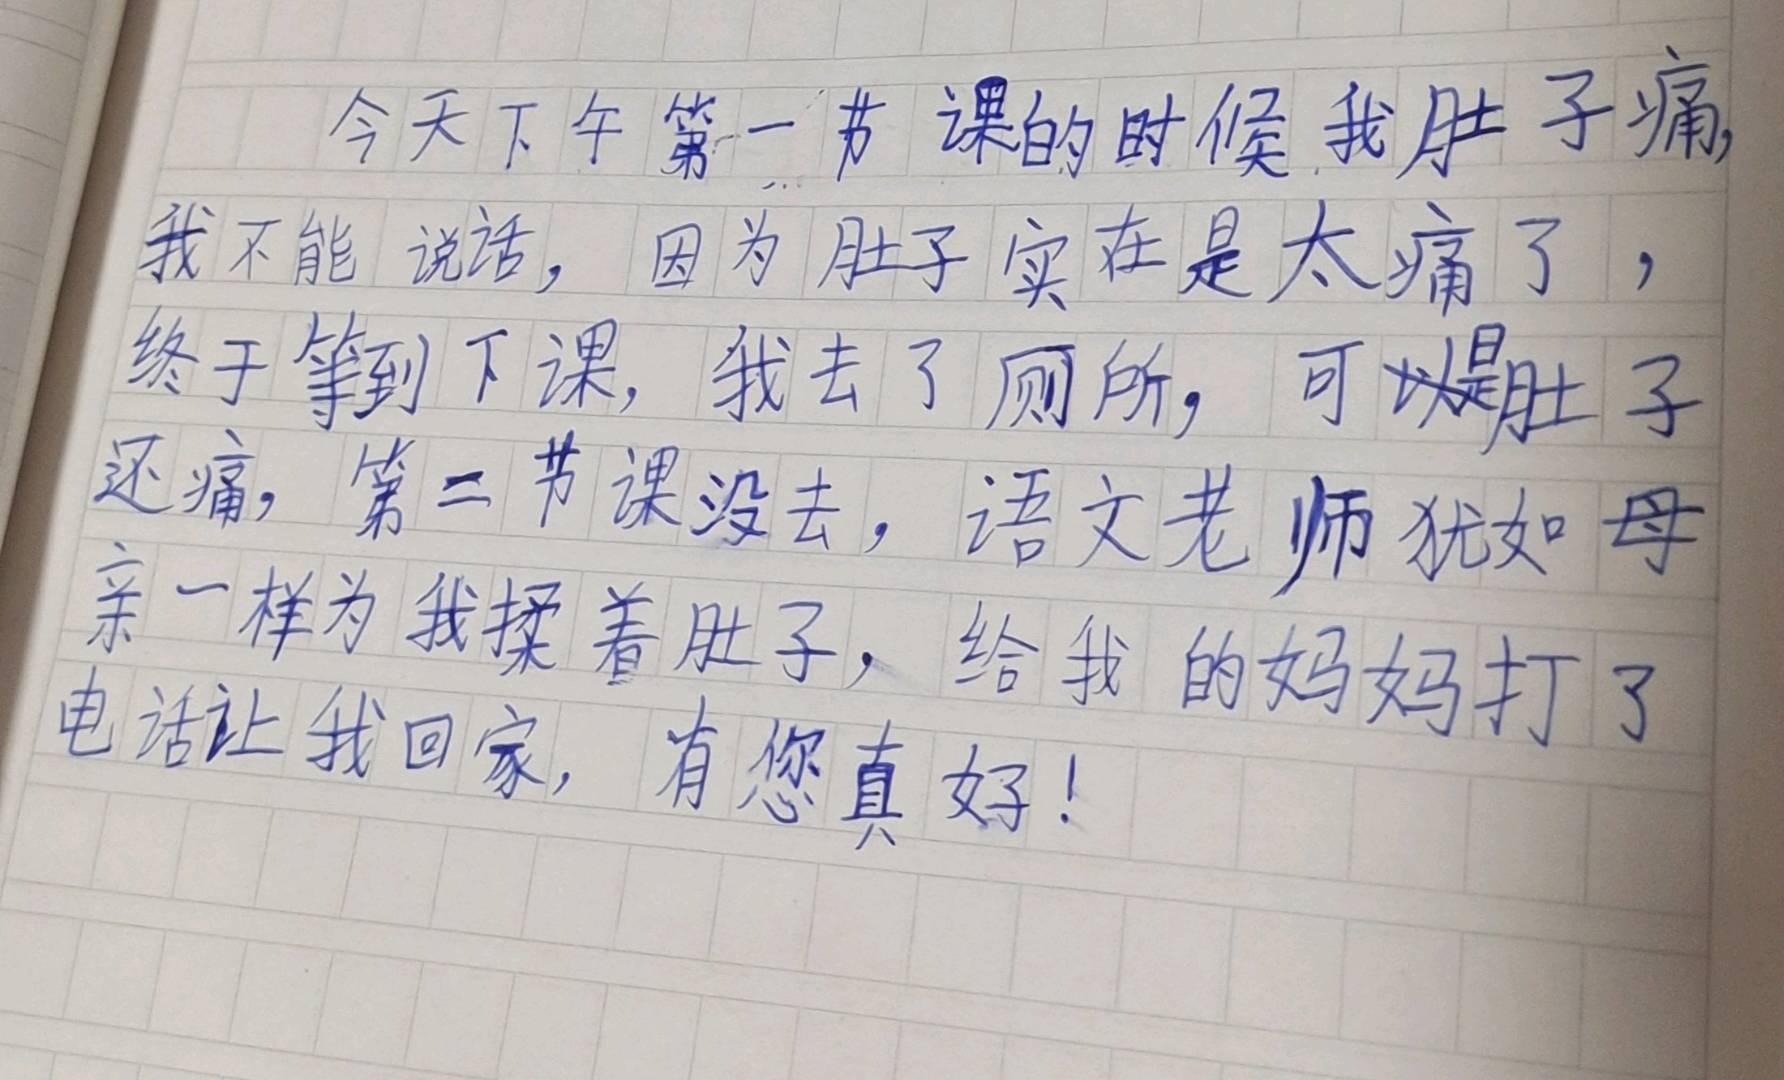 今天下午第一节课的时候我肚子痛,
我不能说话，因为肚子实在是太痛了，
终于等到下课，我去了厕所，可是肚子
还痛，第二节课没去，语文老师犹如母
亲一样为我揉着肚子，给我的妈妈打了
电话让我回家，有您真好！